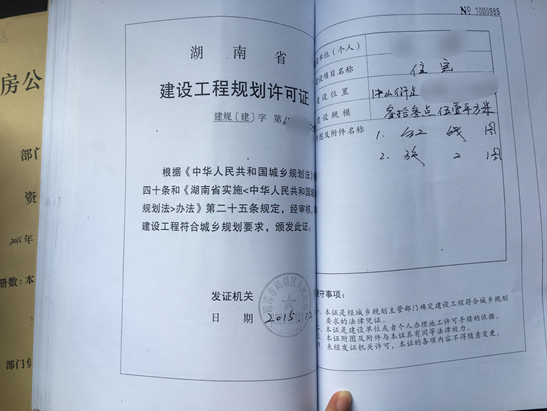 房公
部门
资
2015年
册数：本
部门负
湖南省
建设工程规划许可证
建规［建］字 第
根据《中华人民共和国城乡规划法》
四十条和《湖南省实施<中华人民共和国城
规划法>办法》第二十五条规定，经审核，
建设工程符合城乡规划要求，颁发此证。
发证机关
日 期 2015.12
№ 7000985
单位（个人）
建设项目名称 住宅
建设位置
建设规模 叁拾叁点伍壹平方米
附图及附件名称 1. 红线图
2.
遵守事项：
一、本证是经城乡规划主管部门确定建设工程符合城乡规划
要求的法律凭证。
二、本证是建设单位或者个人办理施工许可手续的依据。
三、本证附图及附件与本证具有同等法律效力。
四、未经发证机关许可，本证的各项内容不得随意变更。